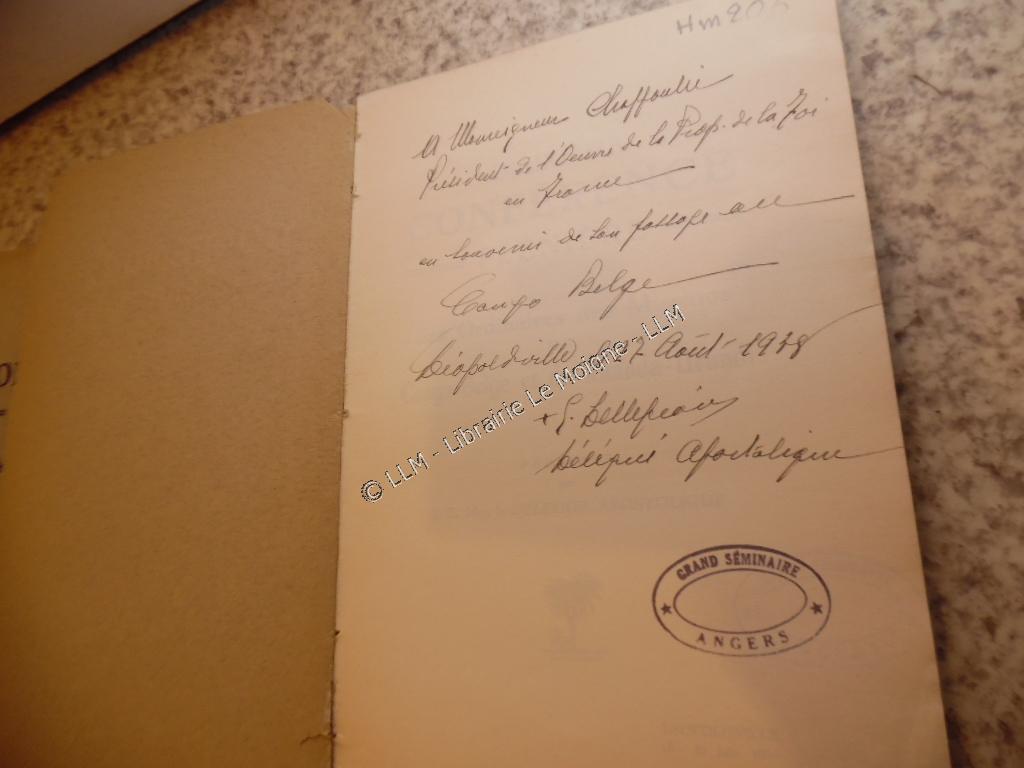 Hm20
A Monseigneur Chaffoulie
Président de l'Oeuvre de la Prop. de la Foi
en France
en souvenir de son passage au
Congo Belge
Léopoldville le 7 Août 1938
+ G. Dellepiane
Délégué Apostolique
© LLM - Librairie Le Moigne - LLM
GRAND SÉMINAIRE
ANGERS